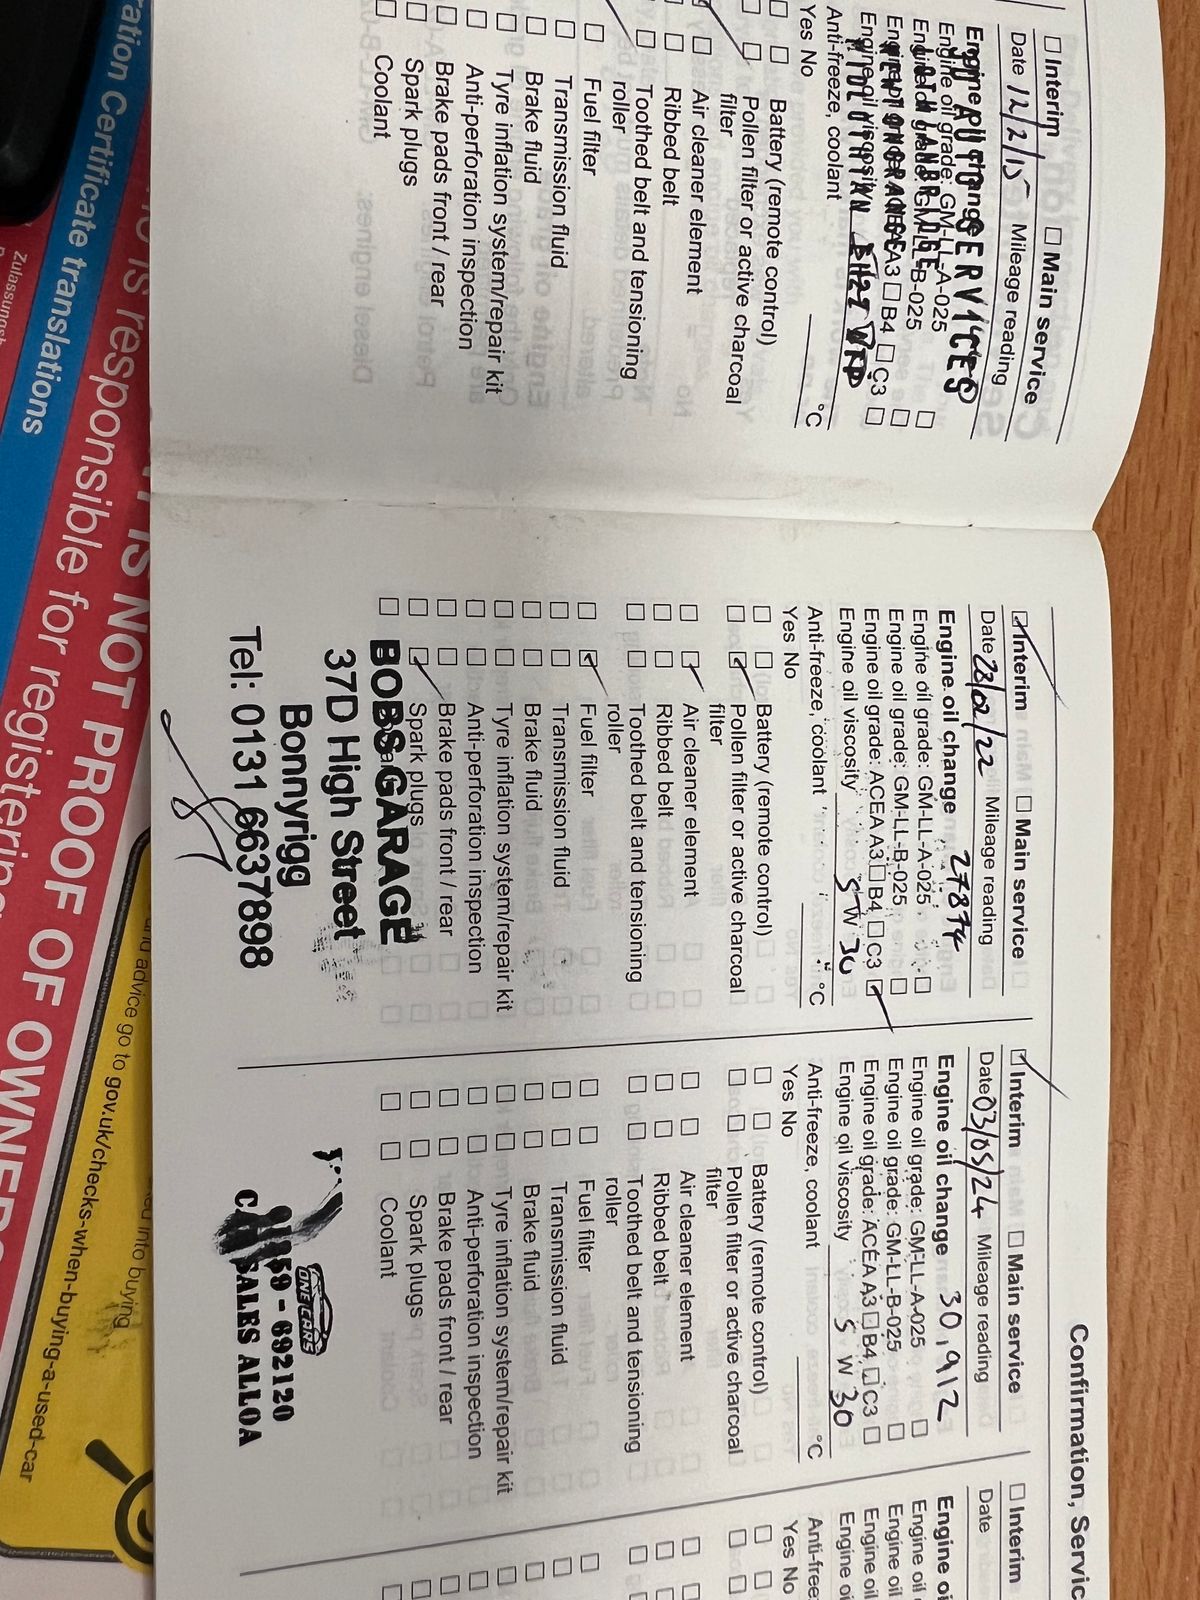 ☐ Interim ☐ Main service
Date 12/2/15 Mileage reading
Engine oil change
Engine oil grade: GM-LL-A-025 ☐
Engine oil grade: GM-LL-B-025 ☐
Engine oil grade: ACEA A3 ☐ B4 ☐ C3 ☐
Engine oil viscosity
AUTO SERVICES
MIDLOTHIAN EH22
Anti-freeze, coolant °C
Yes No
Battery (remote control)
Pollen filter or active charcoal
filter
Air cleaner element
Ribbed belt
Toothed belt and tensioning
roller
Fuel filter
Transmission fluid
Brake fluid
Tyre inflation system/repair kit
Anti-perforation inspection
Brake pads front / rear
Spark plugs
Coolant
☑ Interim ☐ Main service
Date 28/02/22 Mileage reading
27874
Engine oil change
Engine oil grade: GM-LL-A-025 ☐
Engine oil grade: GM-LL-B-025 ☐
Engine oil grade: ACEA A3 ☐ B4 ☐ C3 ☑
Engine oil viscosity 5W 30
Anti-freeze, coolant °C
Yes No
☐ ☐ Battery (remote control)
☐ ☑ Pollen filter or active charcoal
filter
☐ ☑ Air cleaner element
☐ ☐ Ribbed belt
☐ ☐ Toothed belt and tensioning
roller
☐ ☑ Fuel filter
☐ ☐ Transmission fluid
☐ ☐ Brake fluid
☐ ☐ Tyre inflation system/repair kit
☐ ☐ Anti-perforation inspection
☐ ☐ Brake pads front / rear
☐ ☑ Spark plugs
BOBS GARAGE
37D High Street
Bonnyrigg
Tel: 0131 6637898
Confirmation, Servic
☑ Interim ☐ Main service
Date 03/05/24 Mileage reading
Engine oil change 30,912
Engine oil grade: GM-LL-A-025 ☐
Engine oil grade: GM-LL-B-025 ☐
Engine oil grade: ACEA A3 ☐ B4 ☐ C3 ☐
Engine oil viscosity 5 W 30
Anti-freeze, coolant °C
Yes No
☐ ☐ Battery (remote control)
☐ ☐ Pollen filter or active charcoal
filter
☐ ☐ Air cleaner element
☐ ☐ Ribbed belt
☐ ☐ Toothed belt and tensioning
roller
☐ ☐ Fuel filter
☐ ☐ Transmission fluid
☐ ☐ Brake fluid
☐ ☐ Tyre inflation system/repair kit
☐ ☐ Anti-perforation inspection
☐ ☐ Brake pads front / rear
☐ ☐ Spark plugs
☐ ☐ Coolant
ONE CARS
59 - 692120
SALES ALLOA
☐ Interim
Date
Engine oi
Engine oil
Engine oil
Engine oil
Engine oi
Anti-free
Yes No
ration Certificate translations
IS NOT PROOF OF OWNERS
is responsible for registering
into buying
and advice go to gov.uk/checks-when-buying-a-used-car